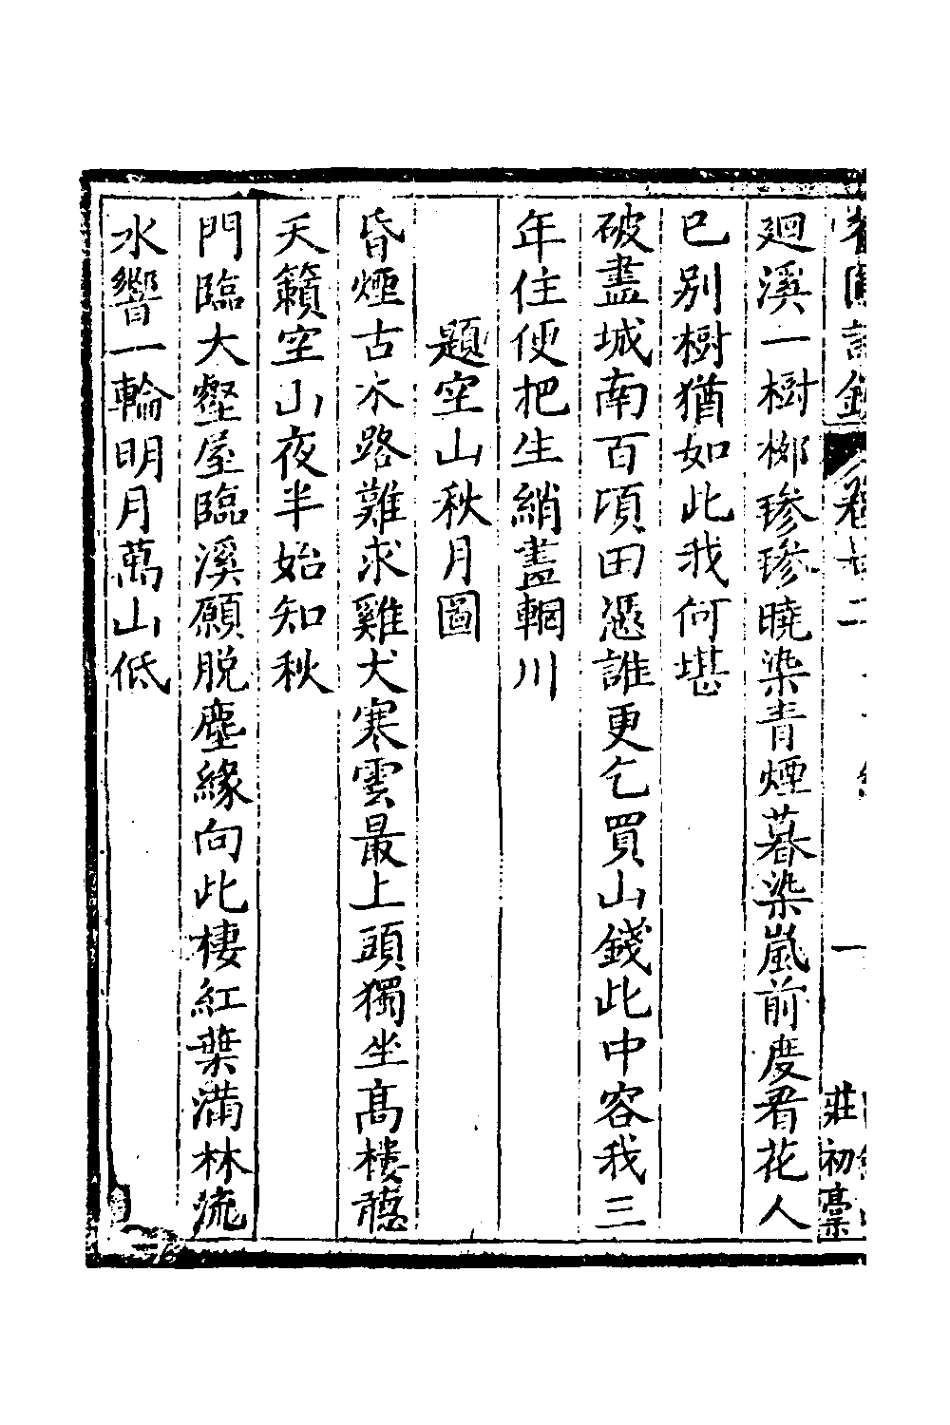 詩鈔
卷
二
一
莊初稾
廻溪一樹柳毿毿曉染青煙暮染嵐前度看花人
已別樹猶如此我何堪
破盡城南百頃田憑誰更乞買山錢此中容我三
年住便把生綃畫輞川
題空山秋月圖
昏煙古木路難求雞犬寒雲最上頭獨坐高樓聽
天籟空山夜半始知秋
門臨大壑屋臨溪願脫塵緣向此棲紅葉滿林流
水響一輪明月萬山低